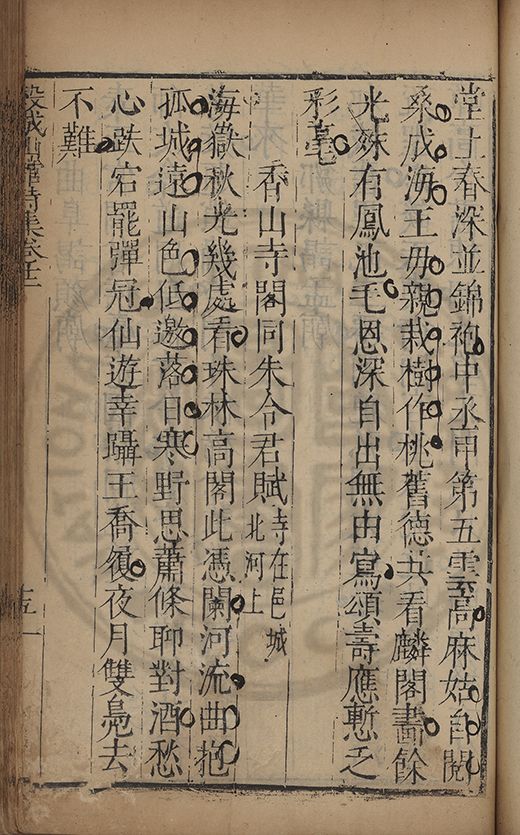 堂上春深並錦袍中丞甲第五雲高麻姑自閱
桑成海王母親栽樹作桃舊德共看麟閣畫餘
光殊有鳳池毛恩深自出無由寫頌壽應慙乏
彩毫
香山寺閣同朱令君賦寺在邑城北河上
海嶽秋光幾處看珠林高閣此憑闌河流曲抱
孤城遠山色低邀落日寒野思蕭條聊對酒愁
心跌宕罷彈冠仙遊幸躡王喬履夜月雙鳧去
不難
穀城山館詩集卷十